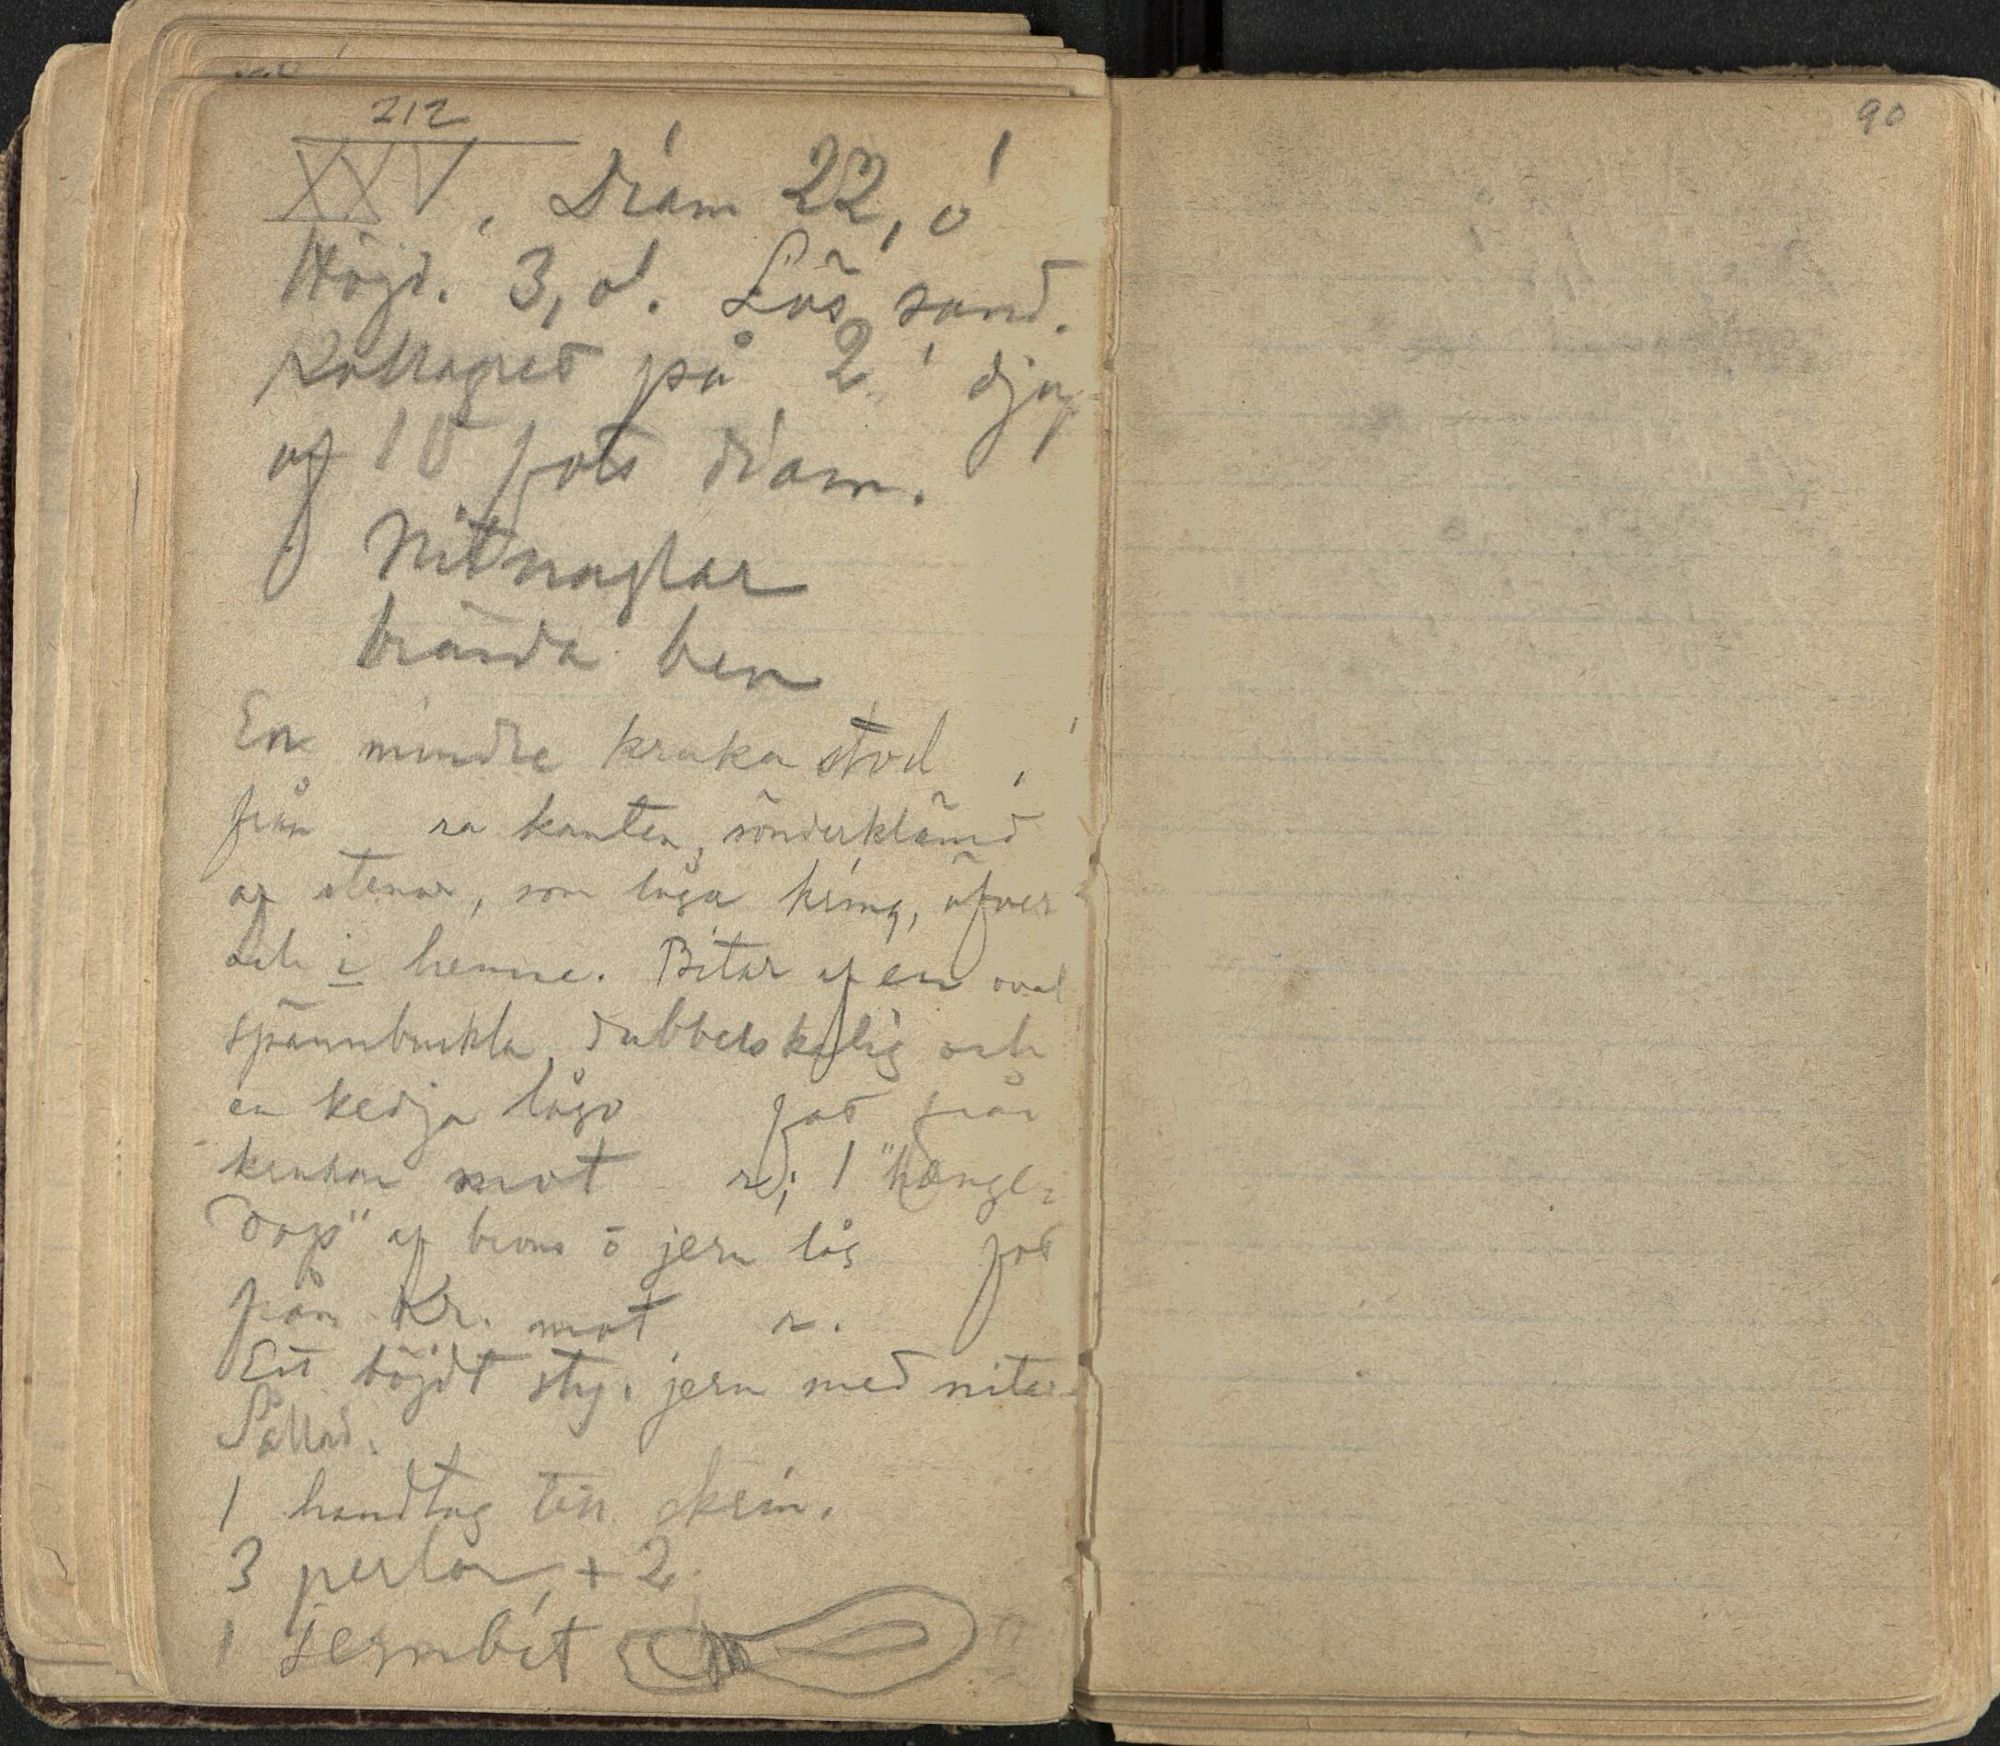 212
XXV. Diam 22,0'
Höjd. 3,0'. Lös sand.
Kollagret på 2' djup
af 10 fots diam.
Nitnaglar
brända ben
En mindre kruka stod ,'
från ra kanten, sönderklämd
af stenar, som låga kring, öfver
och i henne. Bitar af en oval
spännbuckla, dubbelskalig och
en kedja lågo fot från
krukan mot r; 1 "hänge-
dop" af brons o jern låg fot
från Kr. mot r.
Ett böjdt sty. jern med nitar
1 handtag till skrin.
3 perlor, + 2.
1 jernbit
90